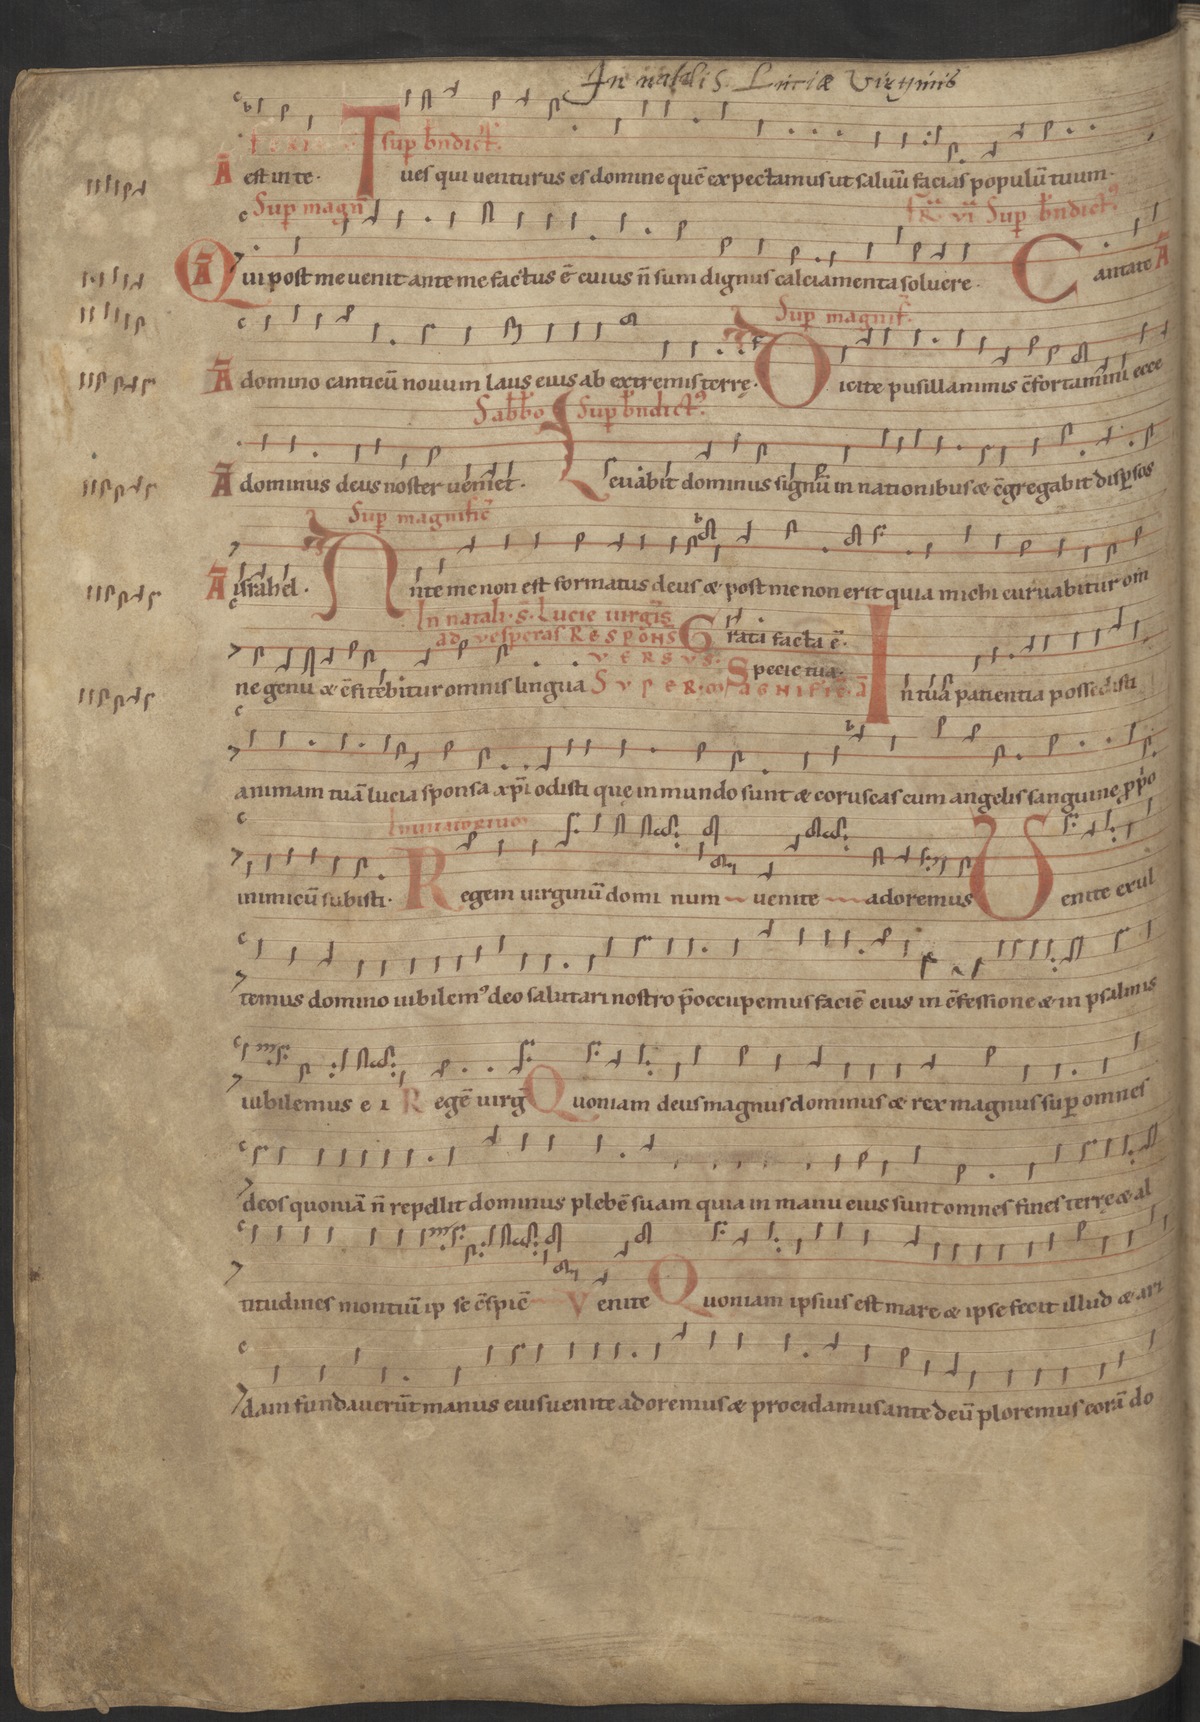 In natali S. Luciæ Virginis
sup bndict̄.
Ā est in te. Tu es qui uenturus es domine quē expectamus ut saluū facias populū tuum.
Sup magn̄ fr̄ vi Sup bndict̄.
Ā Qui post me uenit ante me factus ē cuius n̄ sum dignus calciamenta soluere. Cantate Ā
Sup magnif̄.
Ā domino canticū nouum laus eius ab extremis terrę. Dicite pusillanimis c̄fortamini ecce
Sabbo Sup bndict̄.
Ā dominus deus noster ueniet. Leuabit dominus signū in nationibus & c̄gregabit dispsos
Sup magnific̄
Ā israhel. Ante me non est formatus deus & post me non erit quia michi curuabitur om̄
In natali. S. Lucie uirgis
ad vesperas RESPONS Grati facta ē.
VERSUS. Specie tua.
ne genu & c̄fitebitur omnis lingua SUPER MAGNIFIC̄. ā In tua patientia possedisti
animam tuā lucia sponsa xp̄i odisti que in mundo sunt & coruscas cum angelis sanguine pp̄o
Inuitatorium
inimicū subisti. Regem uirginū domi num uenite adoremus Uenite exul
temus domino iubilem᾽ deo salutari nostro p̄occupemus faciē eius in c̄fessione & in psalmis
iubilemus e i Regē uirḡ Quoniam deus magnus dominus & rex magnus sup omnes
deos quoniā n̄ repellit dominus plebē suam quia in manu eius sunt omnes fines terre & al
titudines montiū ip se c̄spic̄ Venite Quoniam ipsius est mare & ipse fecit illud & ari
dam fundauerūt manus eius uenite adoremus & procidamus ante deū ploremus corā do